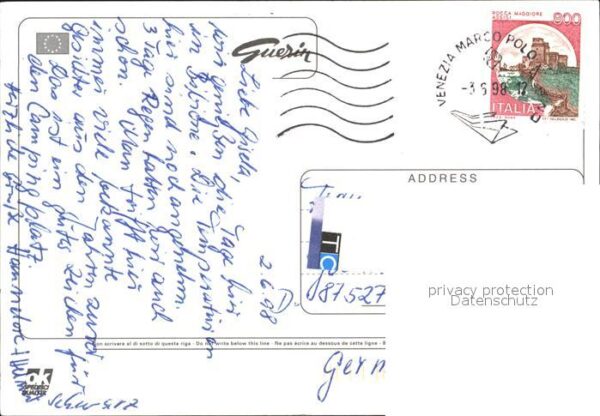 Guerin
ROCCA MAGGIORE
ASSISI
800
ITALIA
VENEZIA MARCO POLO
-3 6 98 12
ADDRESS
2.6.98
Liebe Gisela,
wir genießen die Tage hier
in Bibione. Die Temperaturen
hier sind noch angenehm.
3 Tage Regen hatten wir auch
schon. Man trifft hier
immer viele bekannte
Gesichter aus den Jahren zuvor
Das ist ein gutes Zeichen für
den Campingplatz.
Herzliche Grüße Hannelore +
D-
87527
Germ
privacy protection
Datenschutz
Non scrivere al di sotto di questa riga - Do not write below this line - Ne pas écrire au dessous de cette ligne -
ok